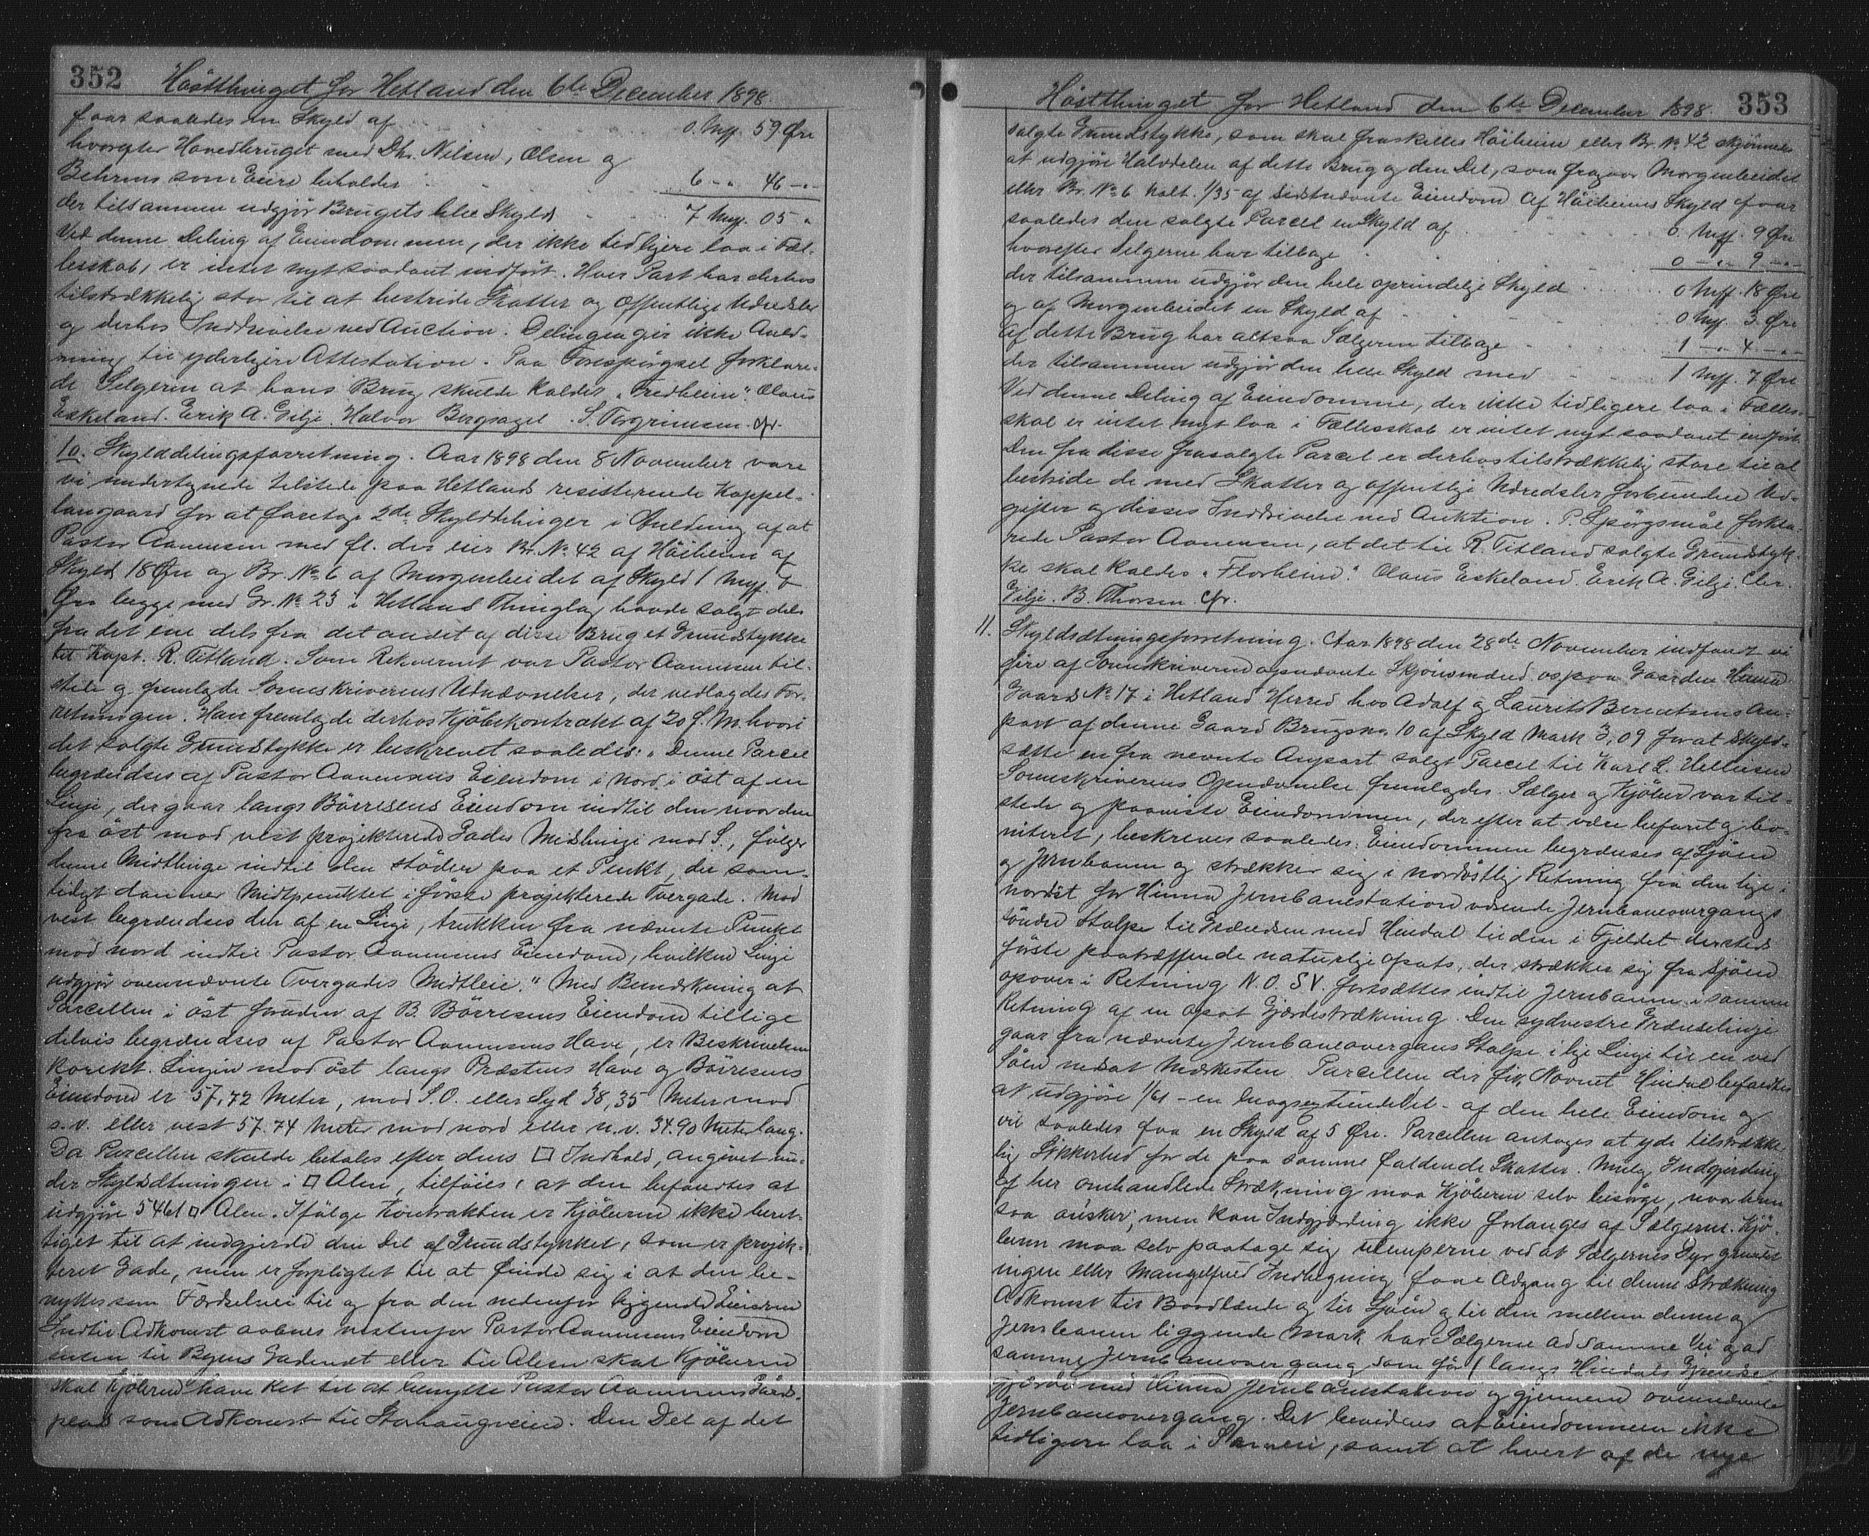 352 Høstthinget for Hetland den 6te December 1898.
faar saaledes en Skyld af 0. Mrk. 59 Øre
hvorefter Hovedbruget med Dhr. Nilsen, Olsen og
Behrens som Eiere beholder 6 - " 46 - "
der tilsammen udgjør Brugets hele Skyld 7 Mrk. 05 "
Ved denne Deling af Eiendommen, der ikke tidligere laa i Fæl-
lesskab, er intet nyt saadant indført. Hver Part har derhos
tilstrækkelig stor til at bestride Skatter og offentlige Udredsler
og derhos Inddrivelse ved Auction. Delingen gir ikke Anled-
ning til yderligere Attestation. Paa Forespørgsel forklare-
de Sælgeren at hans Brug skulde kaldes "Fredheim". Olaus
Eskeland. Erik A. Gilje. Halvor Bergsagel. S. Torgrimsen. cfr.
10. Skylddelingsforretning. Aar 1898 den 8 November vare
vi undertegnede tilstede paa Hetlands residerende Kappel-
langaard for at foretage 2de Skylddelinger i Anledning af at
Pastor Aanensen med fl. der eier Br. No 42 af Høiheim af
Skyld 18 Øre og Br. No 6 af Morgenbeidet af Skyld 1 Mrk. 7
Øre begge med Gr. No 23 i Hetland Thinglag havde solgt dels
fra det ene dels fra det andet af disse Brug et Grundstykke
til Kapt. R. Titland. Som Rekvirent var Pastor Aanensen til-
stede og fremlagde Sorenskriverens Udnævnelse, der vedlagdes For-
retningen. Han fremlagde derhos Kjøbekontrakt af 20 f. M. hvori
det solgte Grundstykke er beskrevet saaledes: "Denne Parcel
begrændses af Pastor Aanensens Eiendom i nord, i øst af en
Linje, der gaar langs Børresens Eiendom indtil den naar den
fra øst mod vest projekterede Gades Midtlinje mod S., følger
denne Midtlinje indtil den støder paa et Punkt, der sam-
tidigt danner Midtpunktet i første projekterede Tvergade. Mod
vest begrændses den af en Linje, trukken fra nævnte Punkt
mod nord indtil Pastor Aanensens Eiendom, hvilken Linje
udgjør ovennævnte Tvergades Midtleie." Med Bemærkning at
Parcellen i øst foruden af B. Børresens Eiendom tillige
delvis begrændses af Pastor Aanensens Have, er Beskrivelsen
korekt. Linjen mod øst langs Præstens Have og Børresens
Eiendom er 57,72 Meter, mod S.O. eller Syd 38,35 Meter mod
s.v. eller vest 57.74 Meter mod nord eller n.v. 34.90 Meter lang.
Da Parcellen skulde betales efter dens □ Indhold, angivet un-
der Skyldsætningen i □ Alen, tilføies, at den befandtes at
udgjøre 5461 □ Alen. Ifølge Kontrakten er Kjøberen ikke beret-
tiget til at indgjerde den Del af Grundstykket, som er projek-
teret Gade, men er forpligtet til at finde sig i at den be-
nyttes som Færdselsvei til og fra den nedenfor liggende Eiendom
Indtil Adkomst aabnes nedenfor Pastor Aanensens Eiendom
enten til Byens Gadenet eller til Alen skal Kjøberen
skal Kjøberen have Ret til at benytte Pastor Aanensens Gårds-
plads som Adkomst til Storhaugveien. Den Del af det
Høstthinget for Hetland den 6te December 1898. 353
solgte Grundstykke, som skal fraskilles Høiheim eller Br. No 42 skjønnes
at udgjøre Halvdelen af dette Brug og den Del, som fragaar Morgenbeidet
eller Br. No 6 kalt. 1/35 af sidstnævnte Eiendom Af Høiheims Skyld faar
saaledes den solgte Parcel en Skyld af 0 Mrk. 9 Øre
hvorefter Selgerne har tilbage 0 - " 9 - "
der tilsammen udgjør den hele oprindelige Skyld 0 Mrk. 18 Øre
og af Morgenbeidet en Skyld af 0 Mrk. 3 Øre
Af dette Brug har altsaa Sælgeren tilbage 1 - " 4 - "
der tilsammen udgjør den hele Skyld med 1 Mrk. 7 Øre
Ved denne Deling af Eiendomme, der ikke tidligere laa i Fælles-
skab er intet nyt laa i Fællesskab er intet nyt saadant indført.
Den fra disse frasolgte Parcel er derhos tilstrækkelig store til at
bestride de med Skatter og offentlige Udredsler forbundne Ud-
gifter og disses Inddrivelse ved Auktion. P. Spørgsmål forkla-
rede Pastor Aanensen, at det til R. Titland solgte Grundstyk-
ke skal kaldes "Florheim" Olaus Eskeland. Erik A. Gilje. Chr.
Gilje. B. Thorsen. cfr.
11. Skyldsætningsforretning. Aar 1898 den 28de November indfandt vi
fire af Sorenskriveren opnævnte Skjønsmænd os paa Gaarden Hinna
Gaards No 17 i Hetland Herred hos Adolf og Laurits Berentsens An-
part af denne Gaard Brugsno 10 af Skyld Mark 3,09 for at skyld-
sætte en fra nevnte Anpart solgt Parcel til Karl L. Helliesen
Sorenskriverens Opnævnelse fremlagdes. Sælger og Kjøber var til-
stede og paaviste Eiendommen, der efter at være befaret og bo-
niteret, beskrives saaledes: Eiendommen begrændses af Sjøen
og Jernbanen og strækker sig i nordøstlig Retning fra den lige i
nordøst for Hinna Jernbanestation værende Jernbaneovergangs
søndre Stolpe til Grændsen med Hindal til den i Fjeldet dersteds
første paatræffende naturlige Opsats, der strækker sig fra Sjøen
opover i Retning N.O. S.V. fortsættes indtil Jernbanen i samme
Retning af en opsat Gjærdestrækning. Den sydvestre Grændselinje
gaar fra nævnte Jernbaneovergans Stolpe i lige Linje til en ved
Søen nedsat Mærkesten. Parcellen der fik Navnet Hindal befandtes
at udgjøre 1/61 - en enogsextiendedel - af den hele Eiendom og
vil saaledes faa en Skyld af 5 Øre. Parcellen antages at yde tilstrække-
lig Sikkerhed for de paa samme faldende Skatter. Mulig Indgjerding
af her omhandlede Strækning maa Kjøberen selv besørge, naar han
saa ønsker, men kan Indgjærding ikke forlanges af Sælgerne. Kjø-
beren maa selv paatage sig Ulemperne ved at Sælgernes Dyr grundet
ingen eller mangelfuld Indhegning faar Adgang til denne Strækning
Adkomst til Baadlænde og til Sjøen og til den mellem denne og
Jernbanen liggende Mark har Sælgerne ad samme Vei og ad
samme Jernbaneovergang som før langs Hindals Grændse
Gjærde med Hinna Jernbanestation og gjennem ovennævnte
Jernbaneovergang. Det bevidnes at Eiendommen ikke
tidligere laa i Sameie, samt at hvert af de nye